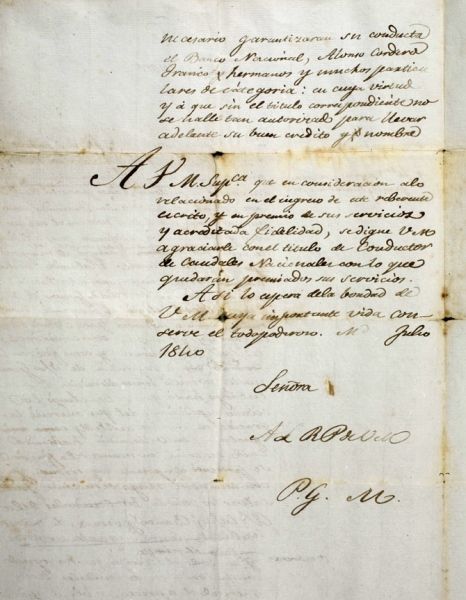 necesario garantizaran su conducta
el Banco Nacional, Alonso Cordero
Franco y hermanos y muchos particu
lares de categoria: en cuya virtud
y á que sin el titulo correspondiente no
se halla tan autorizado para llevar
adelante su buen credito y nombre
A V M. Supca. que en consideracion alo
relacionado en el ingreso de este reberente
escrito, y en premio de sus servicios
y acreditada fidelidad, se digne V M
agraciarle con el titulo de Conductor
de Caudales Nacionales con lo que
quedaran premiados sus servicios.
Asi lo espera dela bondad de
V M cuya importante vida con-
serve el todopoderoso. Md Julio
1840
Señora
A L R P de V M
P. G. M.